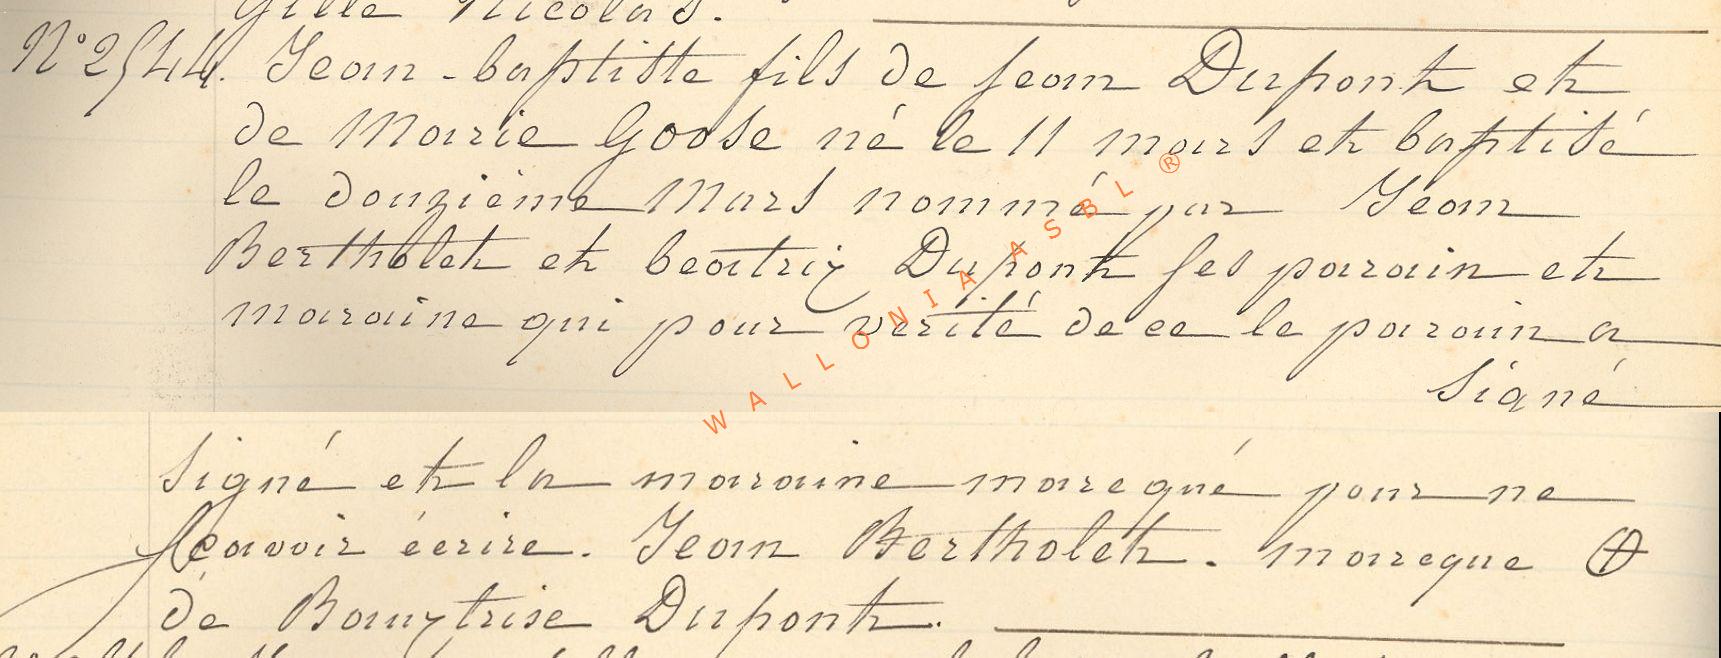 Gille Nicolas.
N° 2544. Jean-baptiste fils de Jean Dupont et
de Marie Goose né le 11 mars et baptisé
le douzième Mars nommé par Jean
Bertholet et beatrix Dupont ses parain et
maraine qui pour verité de ce le parain a
signé
signé et la maraine marcqué pour ne
sçavoir écrire. Jean Bertholet. marcque
de Bauytrise Dupont.
WALLONIA ASBL ®